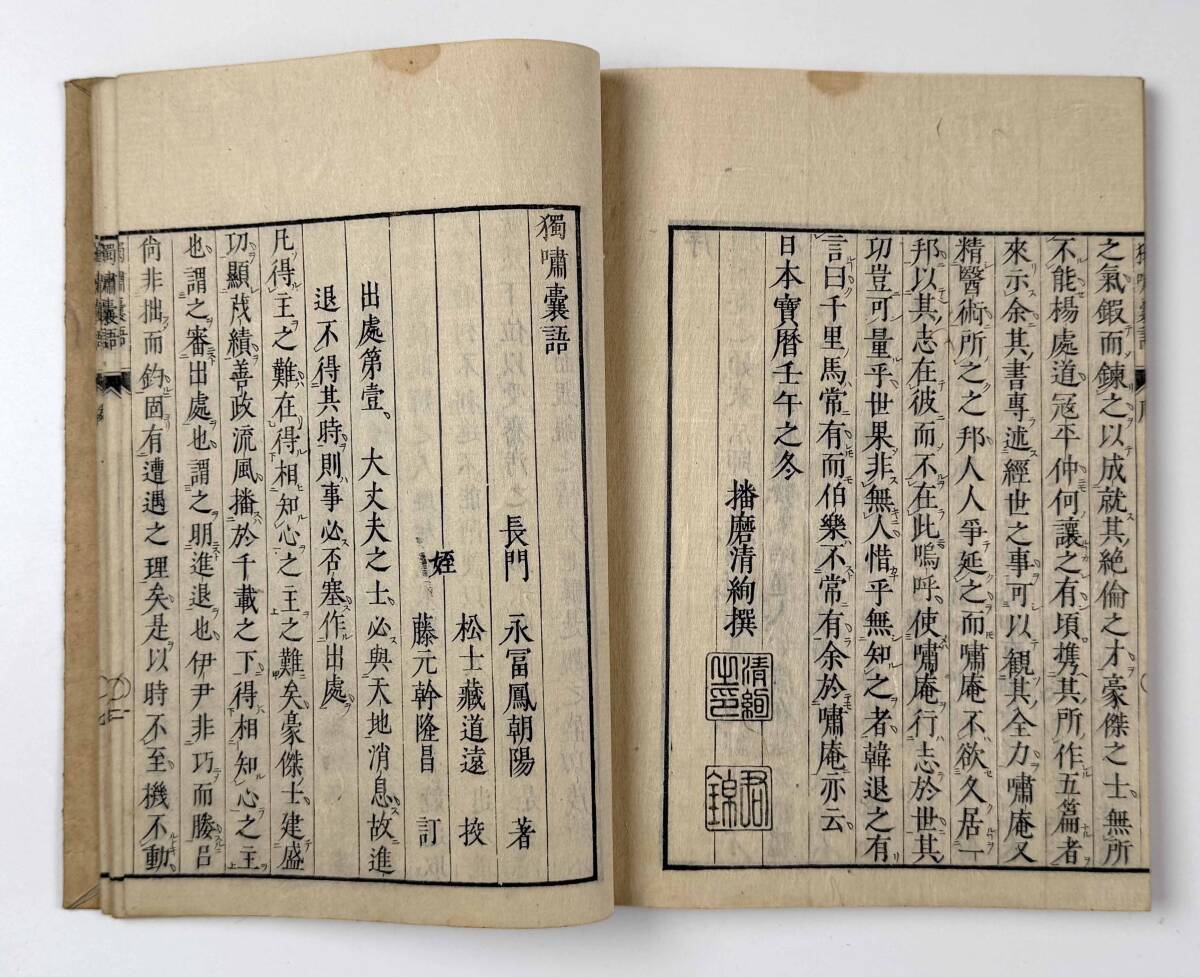 之氣鍜而鍊之以成就其絶倫之才豪傑之士無所
不能楊處道冦平仲何讓之有頃携其所作五篇者
來示余其書專述經世之事可以観其全力嘯庵又
精醫術所之之邦人人爭延之而嘯庵不欲久居一
邦以其志在彼而不在此嗚呼使嘯庵行志於世其
功豈可量乎世果非無人惜乎無知之者韓退之有
言曰千里馬常有而伯樂不常有余於嘯庵亦云
日本寶暦壬午之冬
播磨清絢撰
清絢之印
君錦
獨嘯囊語
長門 永冨鳳朝陽 著
松士藏道遠 挍
姪 藤元幹隆昌 訂
出處第壹、大丈夫之士必與天地消息故進
退不得其時則事必否塞作出處
凡得主之難在得相知心之主之難矣豪傑士建盛
功顯茂績善政流風播於千載之下得相知心之主
也謂之審出處也謂之明進退也伊尹非巧而媵吕
尙非拙而釣固有遭遇之理矣是以時不至機不動
獨嘯囊語